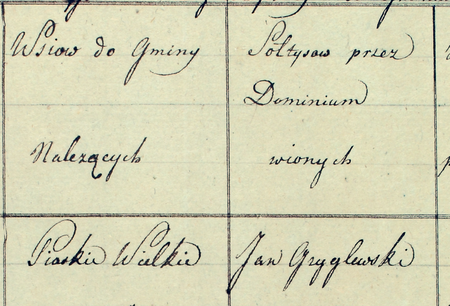 Wsiow do Gminy
Nalezących
Sołtysow przez
Dominium
wionych
Piaskie Wielkie
Jan Gryglewski